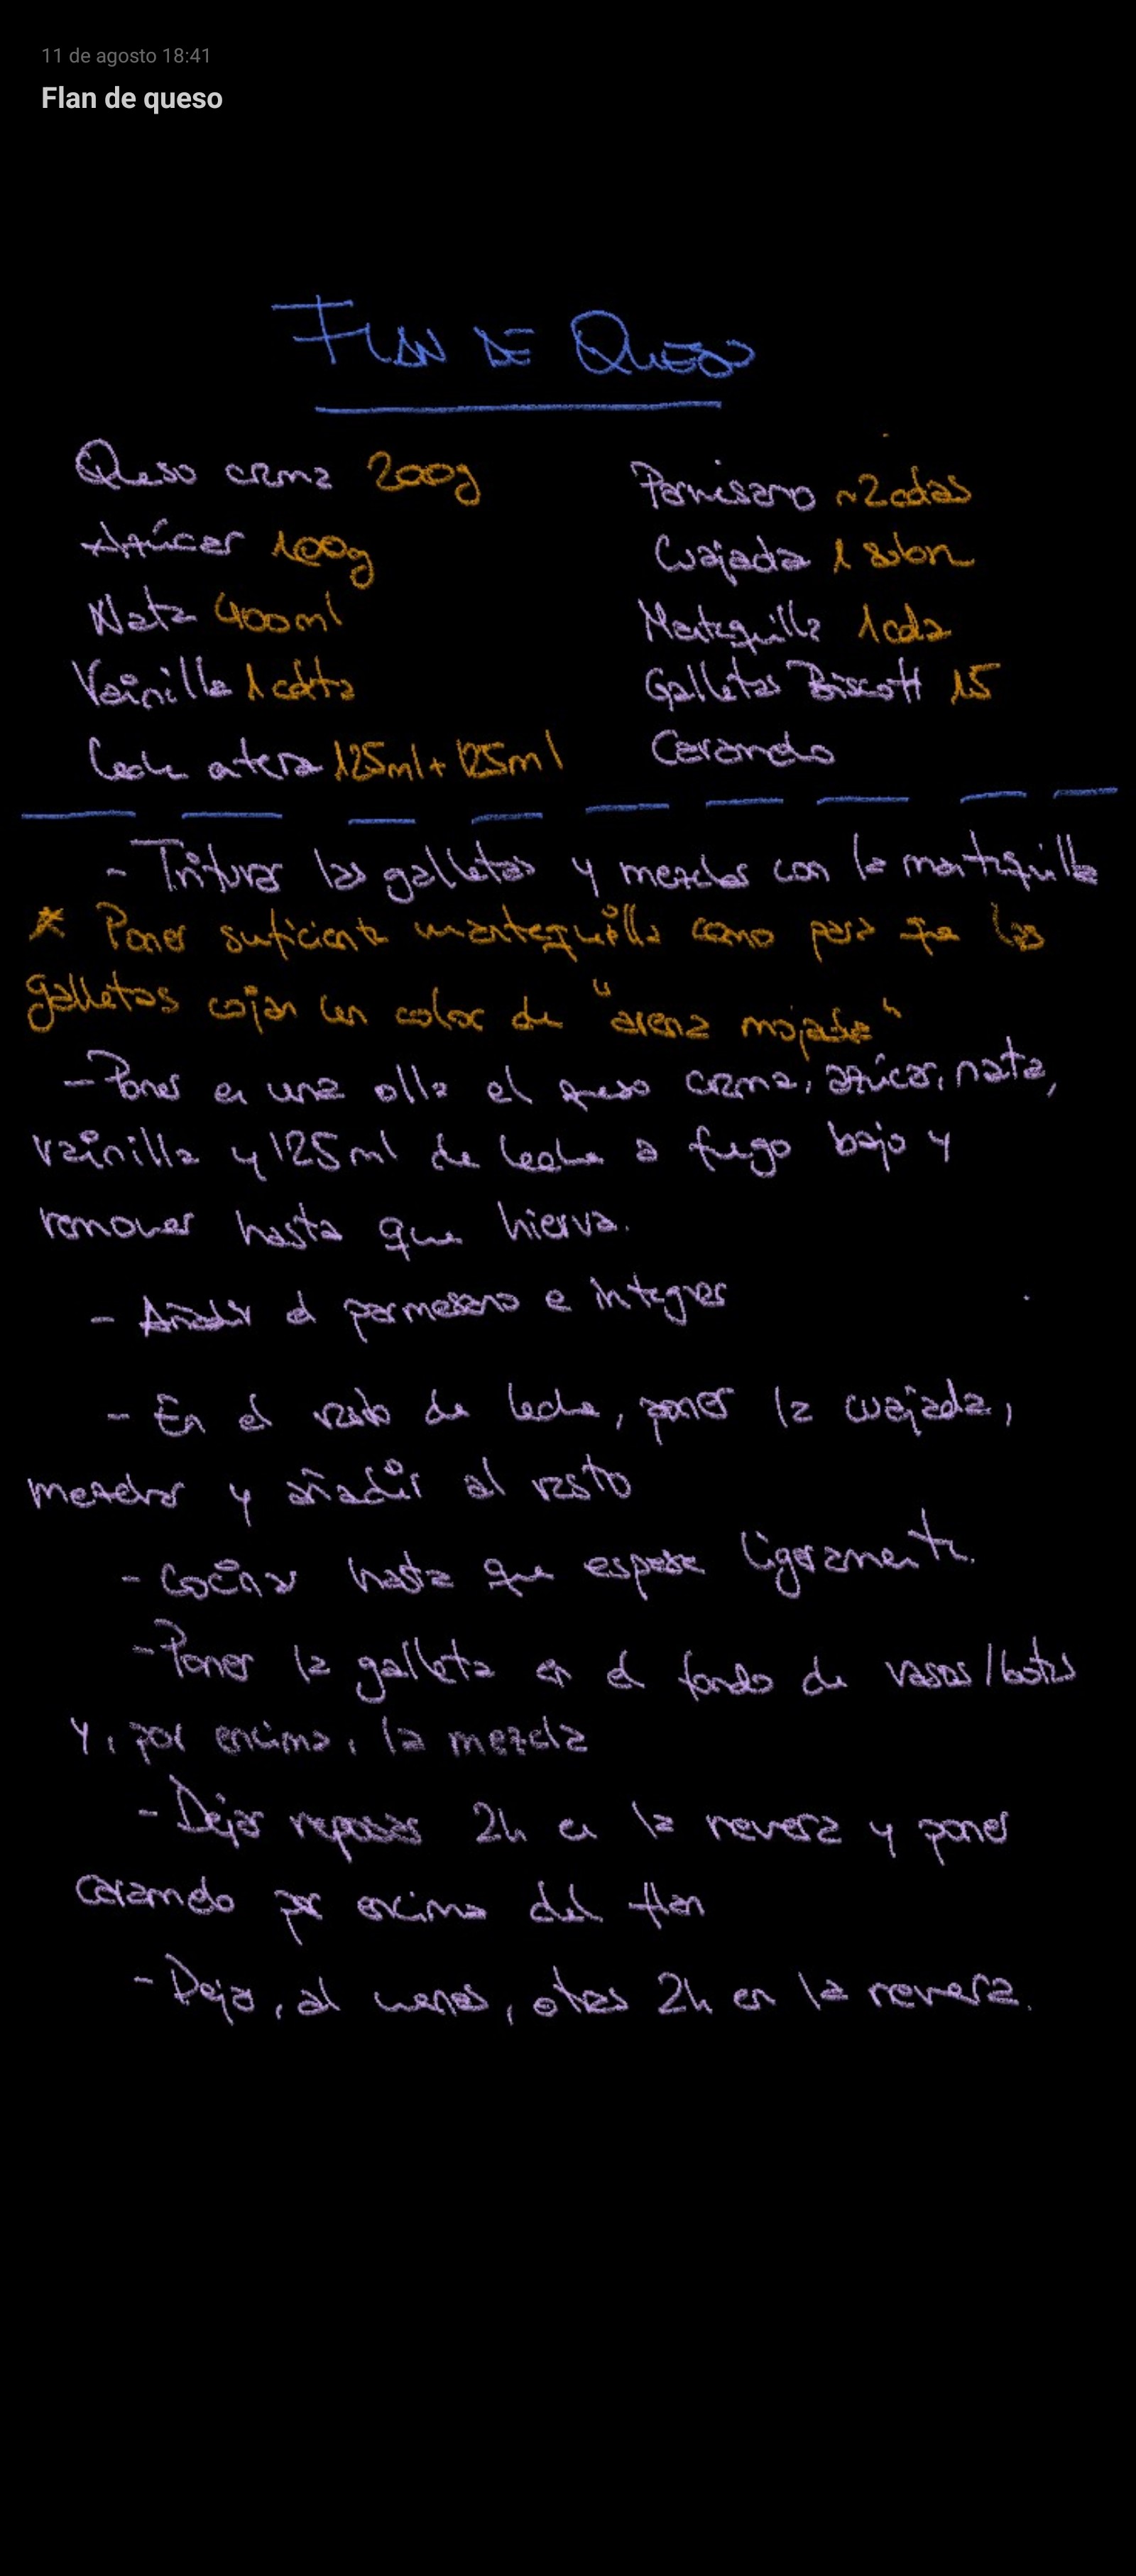 11 de agosto 18:41
Flan de queso
FLAN DE QUESO
Queso crema 200g
Azúcar 100g
Nata 400ml
Vainilla 1 cdta
Leche entera 125ml + 125ml
Parmesano ~2cdas
Cuajada 1 sobre
Mantequilla 1cda
Galletas Biscoff 15
Caramelo
- Triturar las galletas y mezclar con la mantequilla
* Poner suficiente mantequilla como para que las
galletas cojan un color de "arena mojada"
- Poner en una olla el queso crema, azúcar, nata,
vainilla y 125ml de leche a fuego bajo y
remover hasta que hierva.
- Añadir el parmesano e integrar
- En el resto de leche, poner la cuajada,
mezclar y añadir al resto
- Cocinar hasta que espese ligeramente.
- Poner la galleta en el fondo de vasos/botes
y, por encima, la mezcla
- Dejar reposar 2h en la nevera y poner
caramelo por encima del flan
- Dejar, al menos, otras 2h en la nevera.